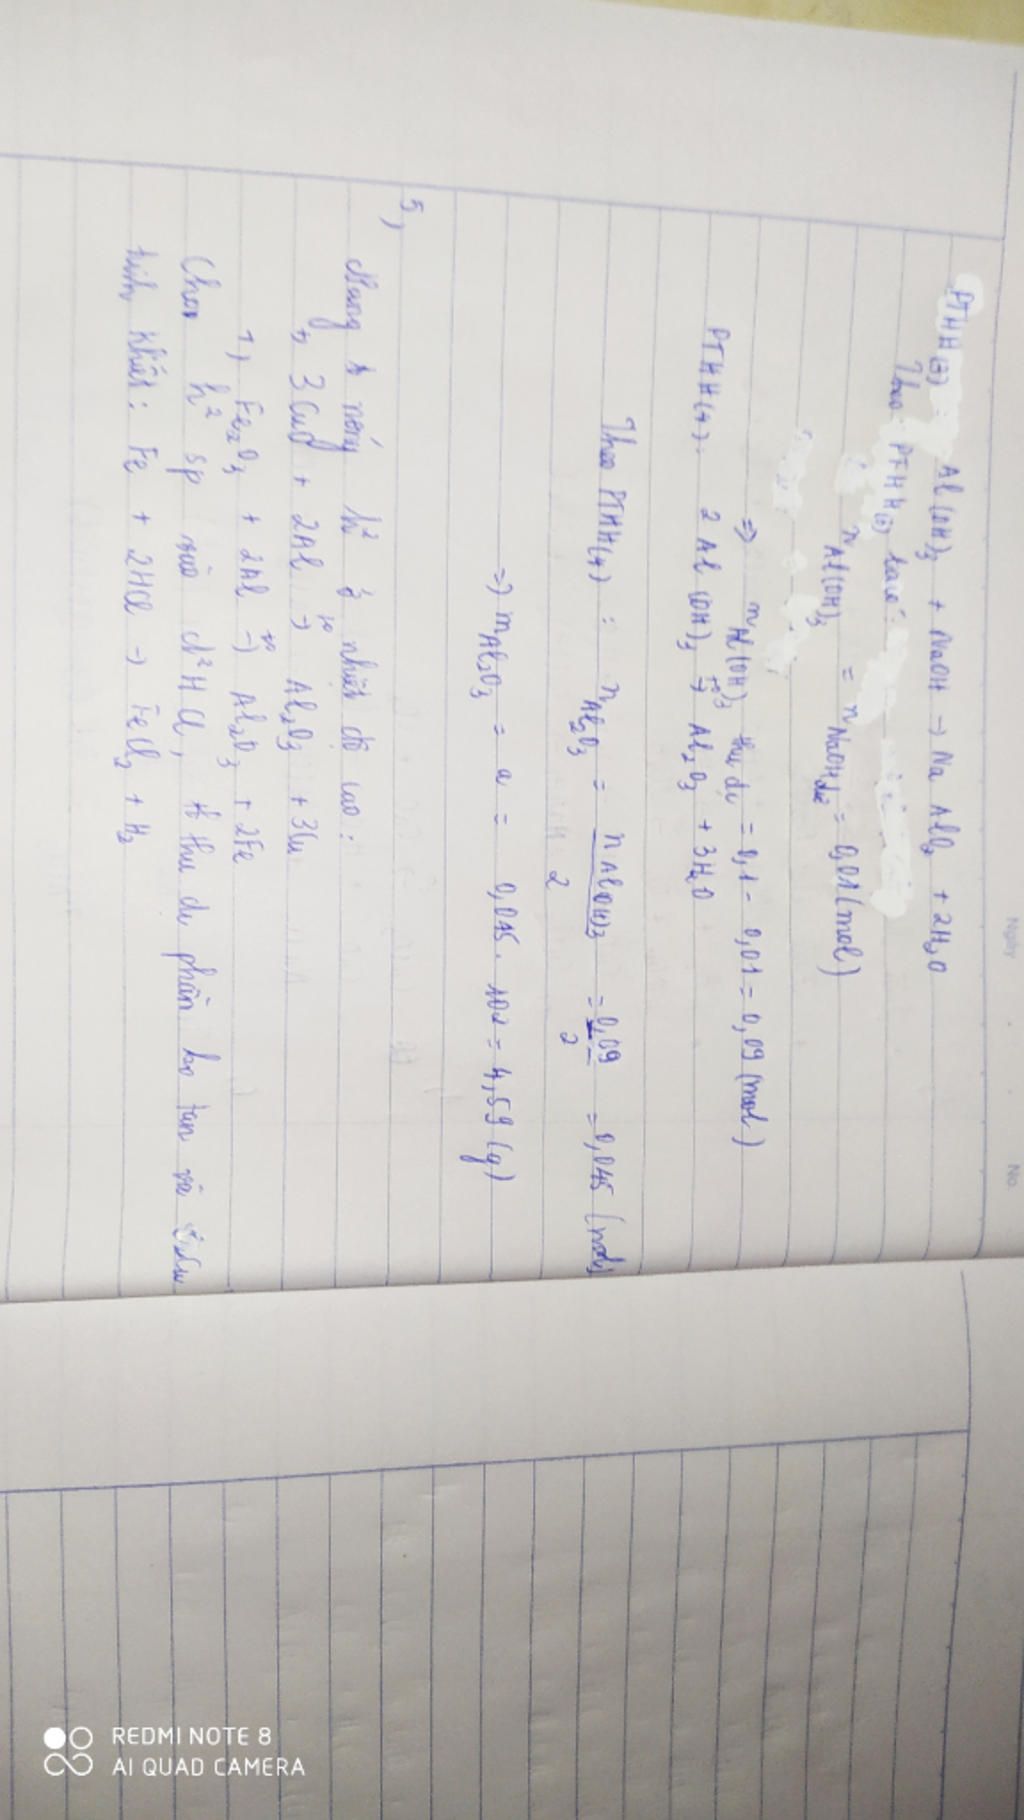 Ngày . . No.
PTHH(3): Al(OH)3 + NaOH → NaAlO2 + 2H2O
Theo: PTHH(3) ta có:
nAl(OH)3 = nNaOHdư = 0,01 (mol)
=> nAl(OH)3 thu đc = 0,1 - 0,01 = 0,09 (mol)
PTHH(4): 2Al(OH)3 t° → Al2O3 + 3H2O
Theo PTHH(4): nAl2O3 = nAl(OH)3 / 2 = 0,09 / 2 = 0,045 (mol)
=> mAl2O3 = a = 0,045 . 102 = 4,59 (g)
5,
nóng h² ở nhiệt độ cao:
3CuO + 2Al t° → Al2O3 + 3Cu
1) Fe2O3 + 2Al t° → Al2O3 + 2Fe
Cho h² sp vào d²HCl, thu đc phần ko tan và Cu
tinh khiết: Fe + 2HCl → FeCl2 + H2
REDMI NOTE 8
AI QUAD CAMERA